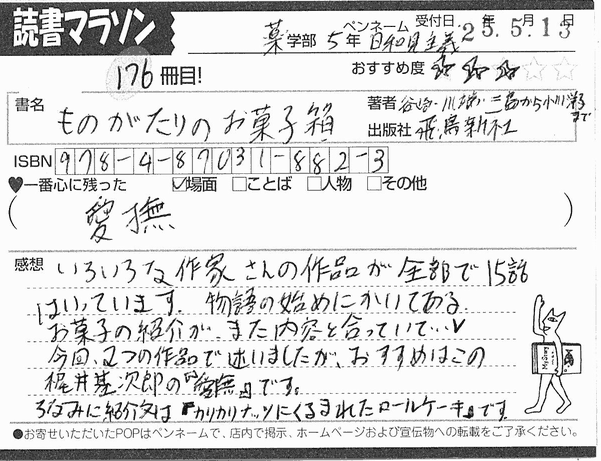 読書マラソン
薬学部 5年 ペンネーム 日和見主義 受付日: 25年5月13日
176冊目! おすすめ度 ☆☆☆☆☆
書名 ものがたりのお菓子箱
著者 谷崎・川端・三島から小川洋子まで
出版社 飛鳥新社
ISBN 978-4-87031-882-3
♥一番心に残った ☑場面 □ことば □人物 □その他
(愛撫)
感想 いろいろな作家さんの作品が全部で15話
はいっています。物語の始めにかいてある
お菓子の紹介が、また内容と合っていて…✓
今回、2つの作品で迷いましたが、おすすめはこの
梶井基次郎の『愛撫』です。
ちなみに紹介文は『カリカリナッツにくるまれたロールケーキ』です
●お寄せいただいたPOPはペンネームで、店内で掲示、ホームページおよび宣伝物への転載をご了承ください。